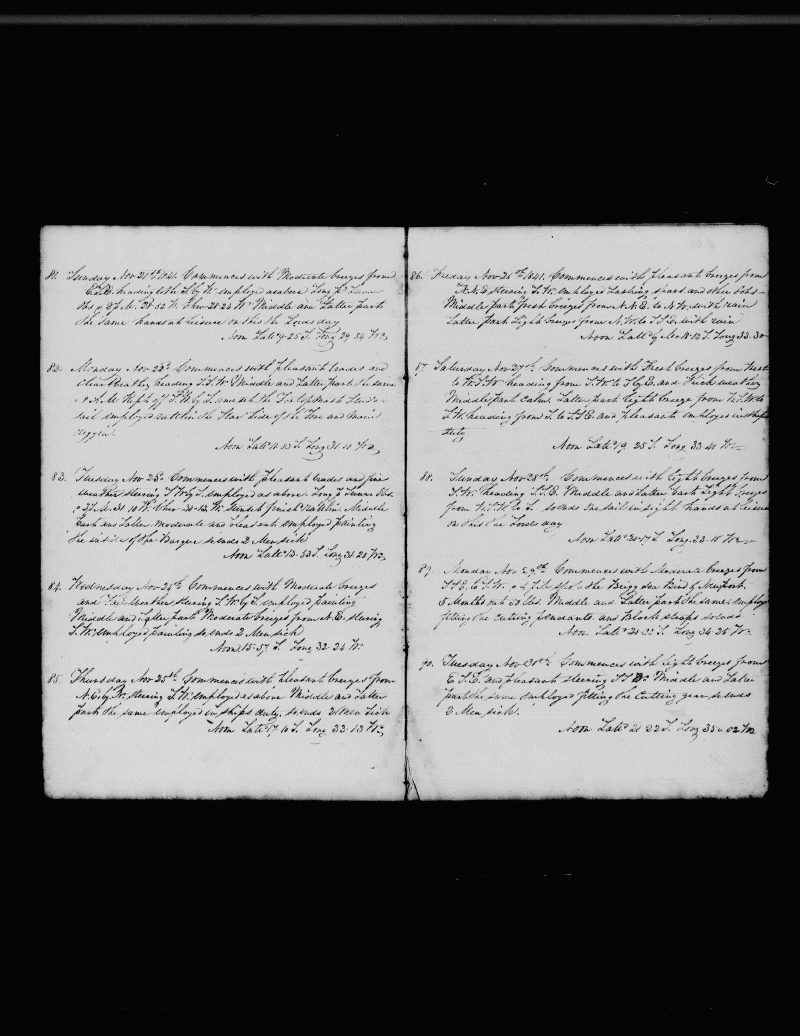 81. Sunday Nov 21st 1841. Commences with Moderate breezes from
E.S.E. heading to the S. by W. employed as above Long by Lunar
Obs
the same hands at leisure so ends the Lords day
Noon Latd
82. Monday Nov 22d Commences with pleasant trades and
clear Weather heading S.S.W. Middle and Latter part the same
sail employed rattlin the Star Side of the Fore and Main
riggin.
Noon Latd 11-13 S. Long 31-11 W
83. Tuesday Nov 23d Commences with pleasant trades and fine
weather steering S.W. by S. employed as above. Long by Lunar Obs.
Middle
Part and Latter moderate and pleasant employed painting
the of the Barque so ends 2 Men sick
Noon Latd 13-53 S. Long 31-28 W
84. Wednesday Nov 24th Commences with Moderate breezes
and fine Weather steering S.W. by S. employed painting
Middle and Latter part Moderate breezes from N.E. steering
S.W. employed painting so ends 2 Men sick
Noon 15-57 S. Long 32-24 W.
85. Thursday Nov 25th Commences with pleasant breezes from
N.E. by N. steering S.W. employed as above Middle and Latter
part the same employed in ships duty, so ends 2 Men Sick
Noon Latd 17-10 S. Long 33-13 W
86. Friday Nov 26th 1841. Commences with pleasant breezes from
N.N.E. steering S.W. employed Lashing spars and other Jobs
Middle part fresh breezes from N.N.E. to N.W. with rain
Latter part Light breezes from N.W. to S.S.E. with rain
Noon Latd by Mer Long 33-30
87 Saturday Nov 27th Commences with Fresh breezes from
to W.S.W. heading from S.W. to S by E. and thick weather
Middle part calm. Latter part light breezes from W.S.W. to
S.W. heading from S. to S.S.E. and pleasant employed in ships
duty
Noon Latd 19-25 S. Long 33-40 W
88. Sunday Nov 28th Commences with light breezes from
S.W. heading S.S.E. Middle and Latter Part Light breezes
from to S. so ends the sail in sight hands at leisure
on this the Lords day
Noon Latd 20-17 S Long 33-11 W
89 Monday Nov 29th Commences with Moderate breezes from
S.S.E. to S.W. the Brigg Sea Bird of Newport.
5 Months out 50 bbls. Middle and Latter part the same employed
fitting the cutting pendants and block straps so ends
Noon Latd Long 34-25 W
90. Tuesday Nov 30th Commences with light breezes from
E.S.E. and pleasant steering Middle and Latter
part the same employed fitting the cutting gear so ends
2 Men sick.
Noon Latd 21-22 S. Long 35-02 W